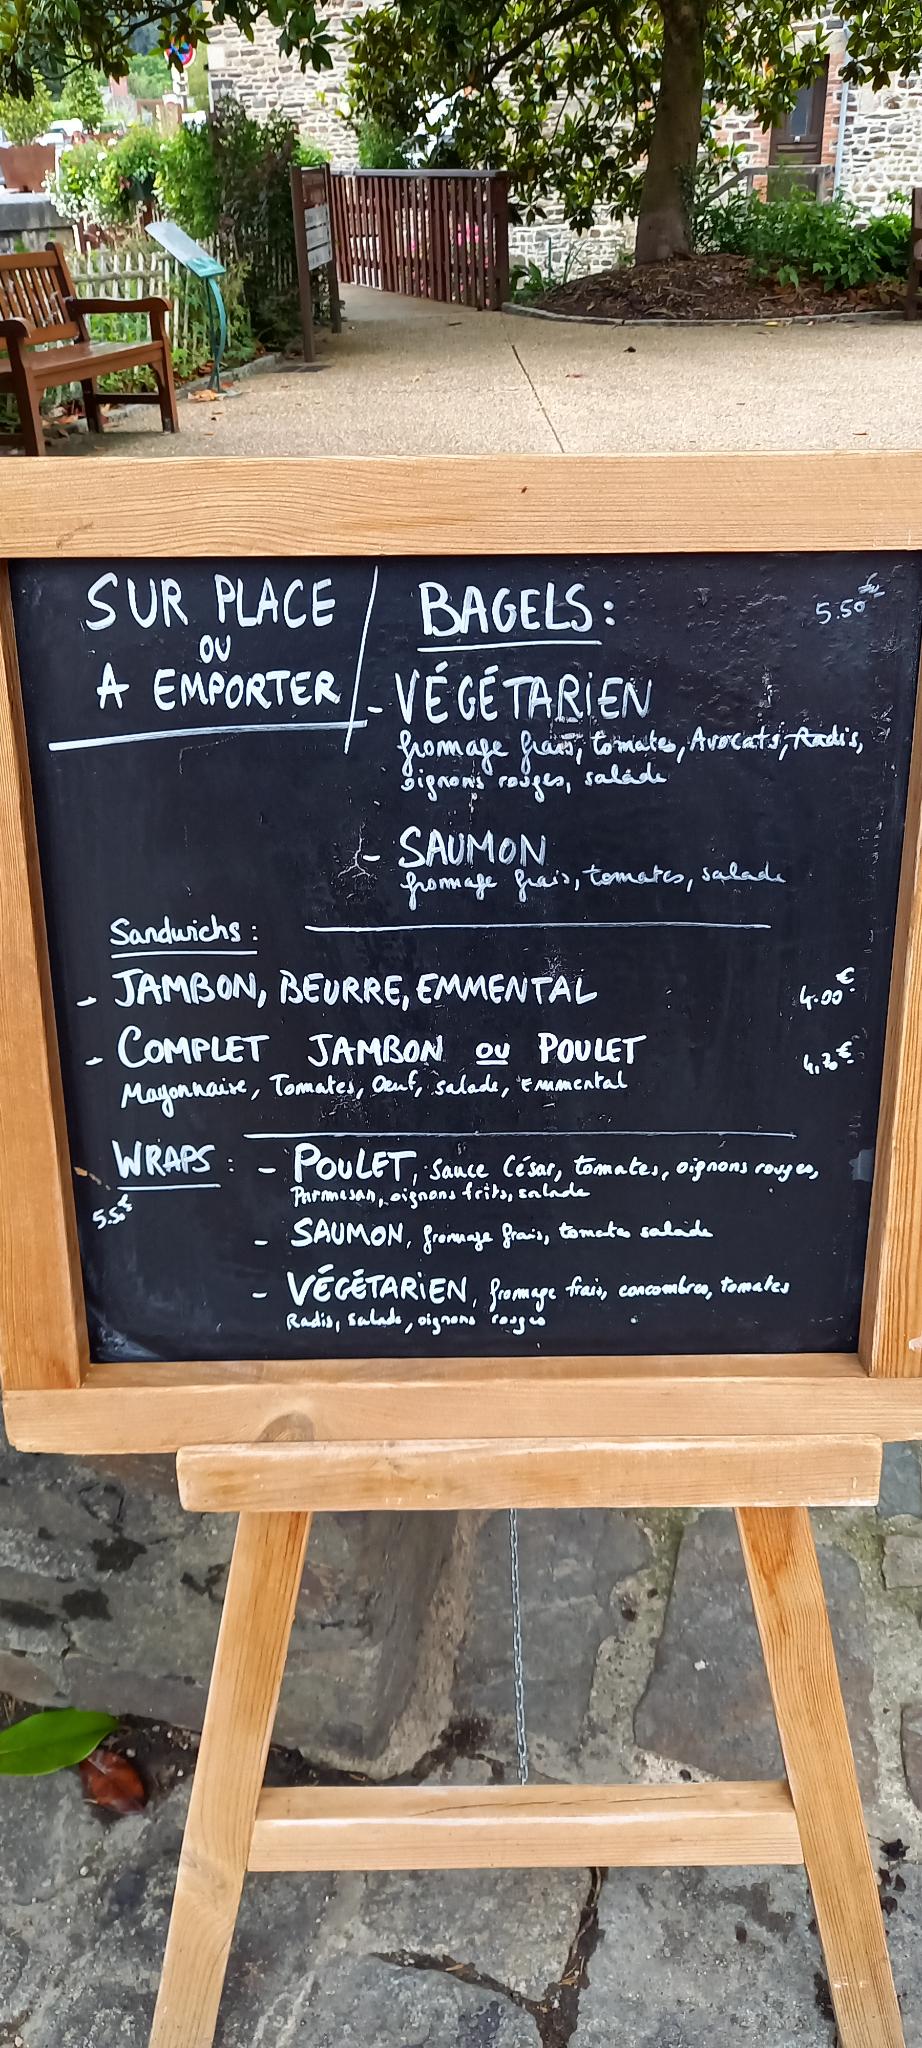 SUR PLACE
OU
A EMPORTER
BAGELS: 5.50
- VÉGÉTARIEN
fromage frais, tomates, Avocats, Radis,
oignons rouges, salade
- SAUMON
fromage frais, tomates, salade
Sandwichs:
- JAMBON, BEURRE, EMMENTAL 4.00€
- COMPLET JAMBON OU POULET
Mayonnaise, Tomates, Oeuf, salade, Emmental
WRAPS: - POULET, sauce César, tomates, oignons rouges,
Parmesan, oignons frits, salade
- SAUMON, fromage frais, tomates salade
- VÉGÉTARIEN, fromage frais, concombres, tomates
Radis, salade, oignons rouges